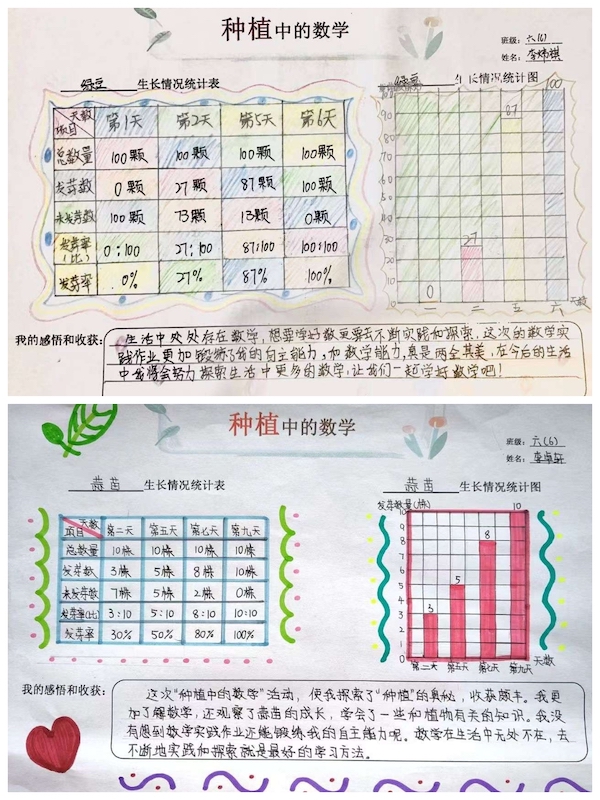 种植中的数学
班级：六(6)
姓名：李炜祺
绿豆 生长情况统计表
天数 项目 第1天 第2天 第5天 第6天
总数量 100颗 100颗 100颗 100颗
发芽数 0颗 27颗 87颗 100颗
未发芽数 100颗 73颗 13颗 0颗
发芽率(比) 0:100 27:100 87:100 100:100
发芽率 0% 27% 87% 100%
绿豆 生长情况统计图
100
90
87
80
70
60
50
40
30
27
20
10
0
0
一 二 五 六 天数
我的感悟和收获：
生活中处处存在数学，想要学好数更要去不断实践和探索，这次的数学实
践作业更加锻炼了我的自主能力，和数学能力，真是两全其美，在今后的生活
中我将会努力探索生活中更多的数学，让我们一起学好数学吧！
种植中的数学
班级：六(6)
姓名：李卓轩
蒜苗 生长情况统计表
天数 项目 第二天 第五天 第七天 第九天
总数量 10株 10株 10株 10株
发芽数 3株 5株 8株 10株
未发芽数 7株 5株 2株 0株
发芽率(比) 3:10 5:10 8:10 10:10
发芽率 30% 50% 80% 100%
蒜苗 生长情况统计图
发芽数量(株)
10
10
9
8
8
7
6
5
5
4
3
3
2
1
0
第二天 第五天 第七天 第九天 天数
我的感悟和收获：
这次“种植中的数学”活动，使我探索了“种植”的奥秘，收获颇丰。我更
加了解数学，还观察了蒜苗的成长，学会了一些和植物有关的知识。我没
有想到数学实践作业还能锻炼我的自主能力呢。数学在生活中无处不在，去
不断地实践和探索就是最好的学习方法。